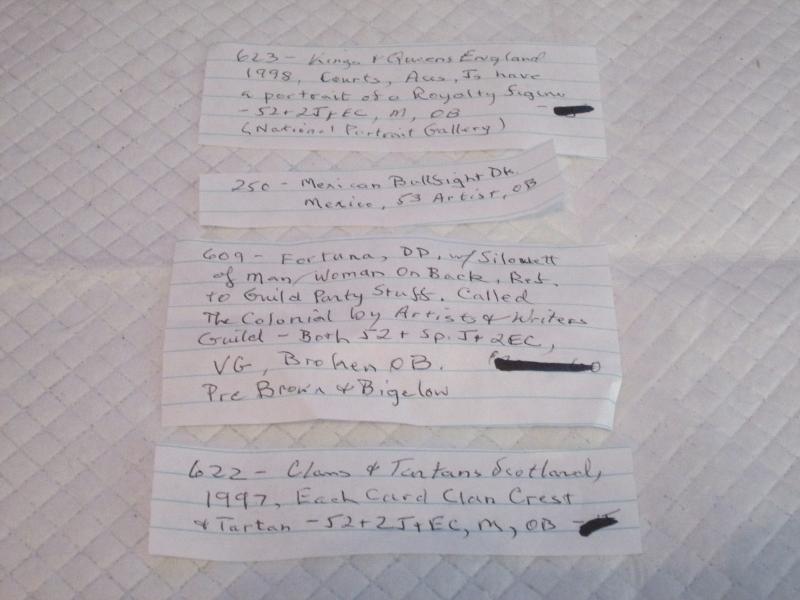 623 - Kings & Queens England
1998, Courts, Aces, Js have
a portrait of a Royalty Figure
- 52 + 2J + EC, M, OB -
(National Portrait Gallery)
250 - Mexican Bullfight Dk.
Mexico, 53 Artist, OB
609 - Fortuna, DD, w/ Silowett
of Man/Woman On Back, Ref.
to Guild Party Stuff. Called
The Colonial by Artists & Writers
Guild - Both 52 + Sp. J + 2EC,
VG, Broken OB.
Pre Brown & Bigelow
622 - Clans & Tartans Scotland,
1997, Each Card Clan Crest
& Tartan - 52 + 2J + EC, M, OB -